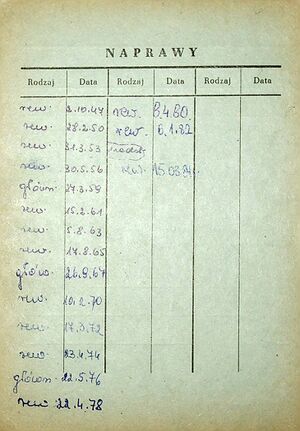 NAPRAWY
Rodzaj Data Rodzaj Data Rodzaj Data
rew. 2.10.47 rew. 8.4.80.
rew. 28.2.50 rew. 6.1.82
rew. 31.3.53
rew. 30.5.56 rew. 15.03.84
główn. 27.3.59
rew. 15.2.61
rew. 5.8.63
rew. 17.8.65
główn. 26.9.67
rew. 10.2.70
rew. 17.3.72
rew. 23.4.74
główn. 22.5.76
rew 22.4.78